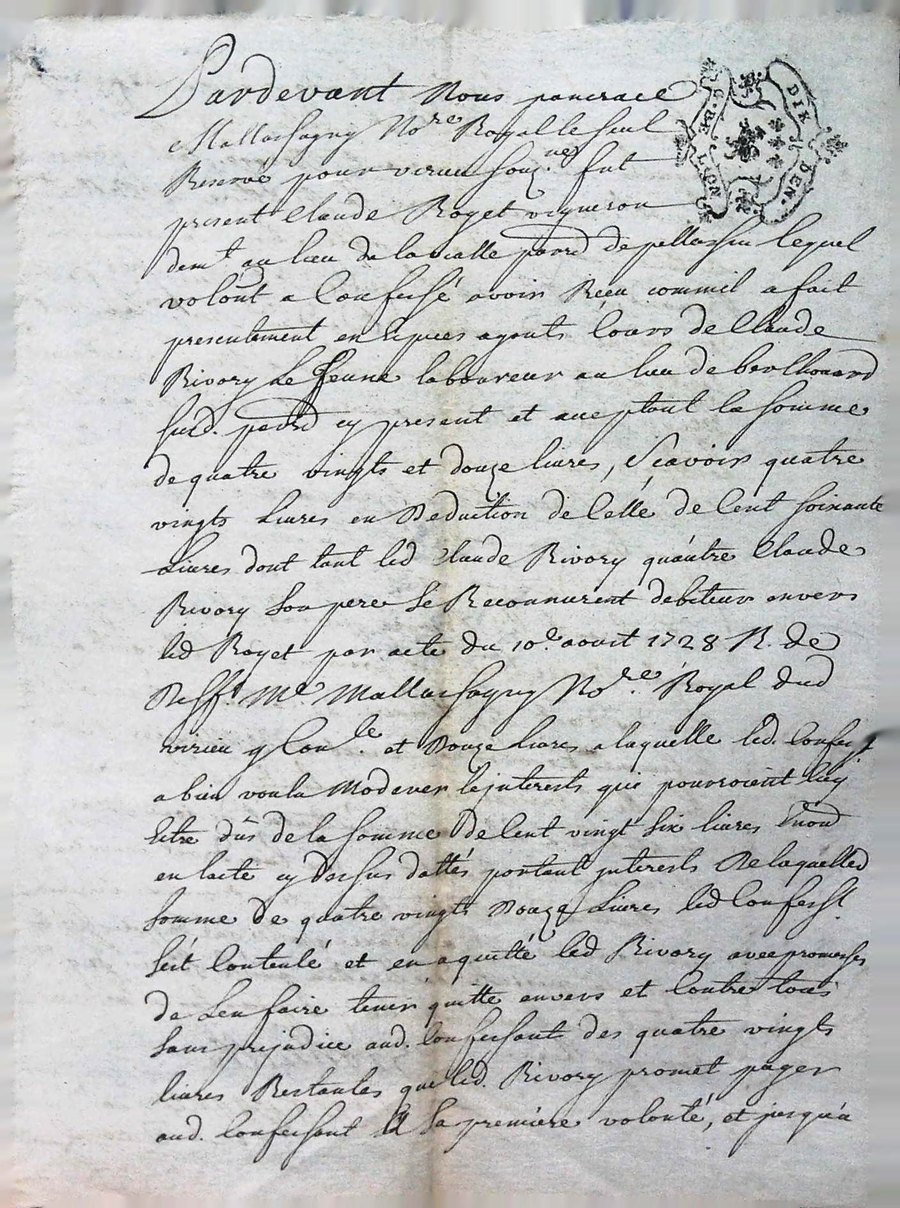 Pardevant Nous pancrace
Mallassagny No.re Royal le seul
Reservé pour virieu souz.né fut
present Claude Royet vigneron
dem.t au lieu de la vialle paroi.d de pellussin lequel
volont a Confessé avoir Reçu comm'il a fait
presentement en Espèces ayants Cours de Claude
Rivory Le Jeune laboureur au lieu de
sud. paroi.d cy present et acceptant la somme
de quatre vingts et douze livres, Sçavoir quatre
vingts Livres en Deduction de Celle de Cent soixante
Livres dont tant led Claude Rivory qu'autre Claude
Rivory son pere se Reconnurent debiteur envers
led Royet par acte du 10.e aoust 1728 R. de
Deff.t M.e Mallassagny No.re Royal dud
virieu et Douze Livres a laquelle led. Confess.t
a bien voulu Moderer le jnterests qui pourroient luy
Estre dûs de la somme de Cent vingt six livres
en lacte cy Dessus dattés portant jnterests De laquelled
somme de quatre vingts Douze Livres led Confess.t
s'est Contenté et en aquitté led Rivory avec promesses
de L'en faire tenir quitte envers et Contre tous
sans prejudice aud. Confessant des quatre vingts
livres Restantes que led. Rivory promet payer
aud. Confessant A Sa première volonté, et jusqu'a
G. DE LION
DIX DEN.